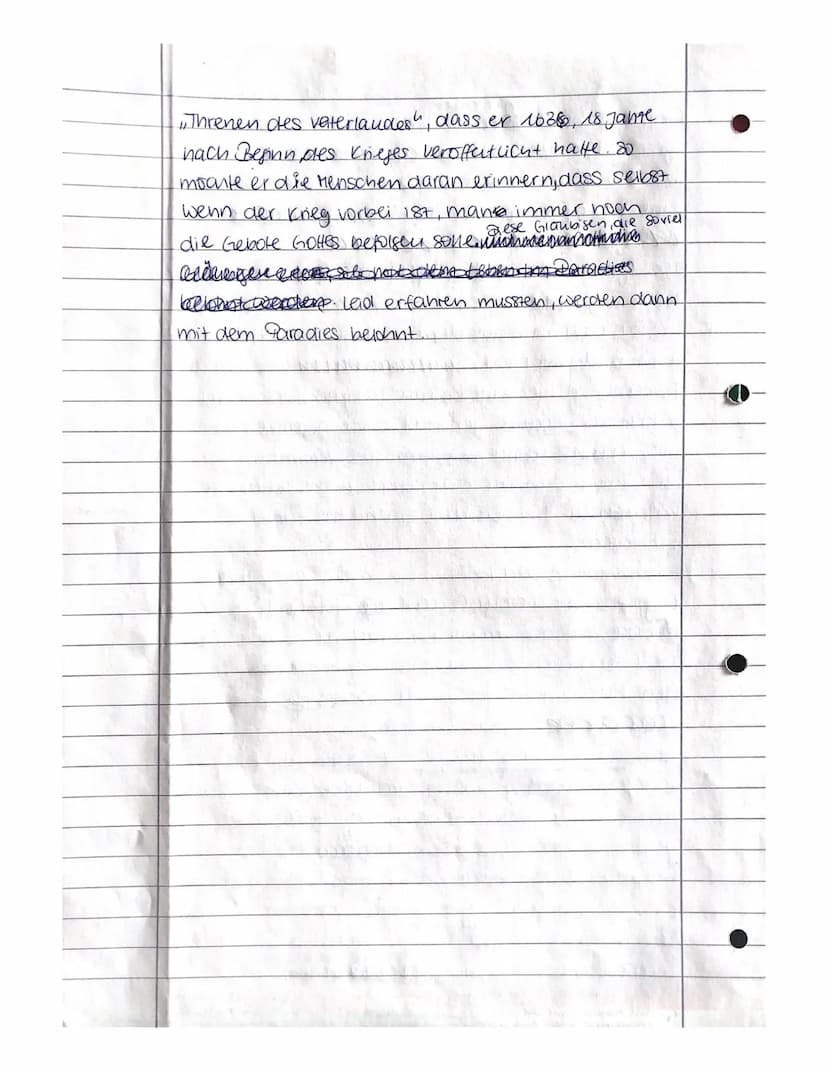 „Threnen des Vaterlandes“, dass er 1636, 18 Jahre
nach Beginn des Krieges veröffentlicht hatte. So
möchte er die Menschen daran erinnern, dass selbst
wenn der Krieg vorbei ist, man immer noch
diese Gläubigen, die soviel
die Gebote Gottes befolgen solle.
belohnt werden. Leid erfahren mussten, werden dann
mit dem Paradies belohnt.